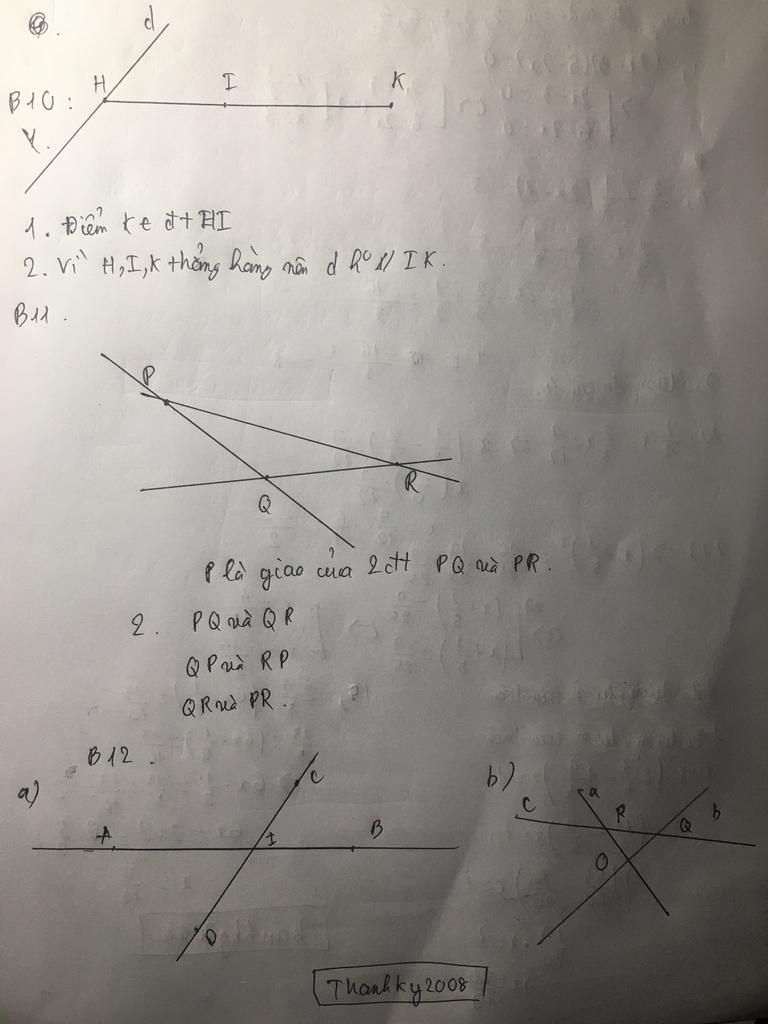 d
H I K
B10:
1. Điểm K ∈ đt HI
2. Vì H, I, K thẳng hàng nên d k° // IK.
B11.
P
R
Q
P là giao của 2 đt PQ và PR.
2. PQ và QR
QP và RP
QR và PR.
B12.
a) C
A I B
D
b) a
c R Q b
O
Thanhky2008